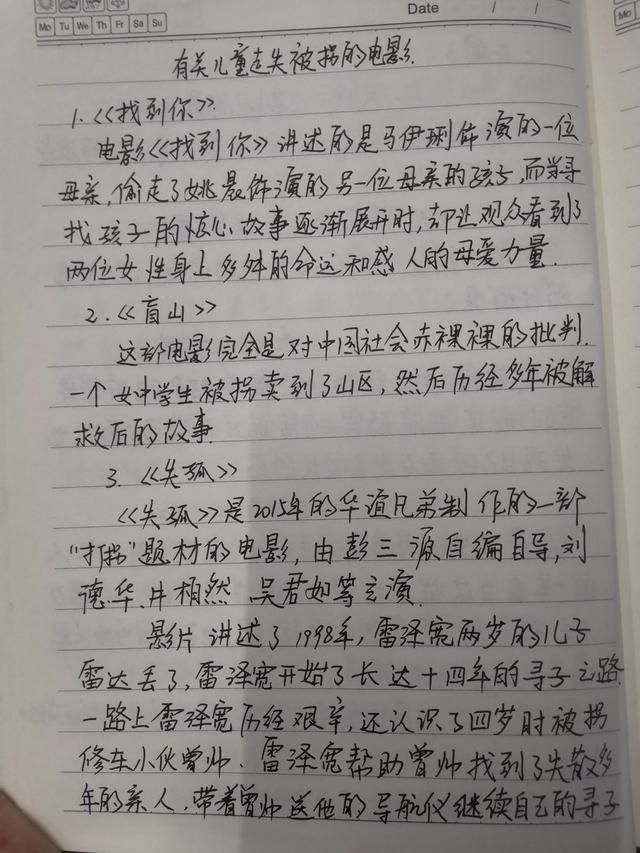 Date / /
Mo Tu We Th Fr Sa Su
Mo
有关儿童走失被拐的电影.
1.《找到你》.
电影《找到你》讲述的是马伊琍饰演的一位
母亲,偷走了姚晨饰演的另一位母亲的孩子,而当寻
找孩子的惊心故事逐渐展开时,却让观众看到了
两位女性身上多舛的命运和感人的母爱力量.
2.《盲山》
这部电影完全是对中国社会赤裸裸的批判.
一个女中学生被拐卖到了山区,然后历经多年被解
救后的故事.
3.《失孤》
《失孤》是2015年的华谊兄弟制作的一部
“打拐”题材的电影,由彭三源自编自导,刘
德华.井柏然 吴君如等主演.
影片讲述了1998年,雷泽宽两岁的儿子
雷达丢了,雷泽宽开始了长达十四年的寻子之路.
一路上雷泽宽历经艰辛,还认识了四岁时被拐
修车小伙曾帅.雷泽宽帮助曾帅找到了失散多
年的亲人,带着曾帅送他的导航仪继续自己的寻子